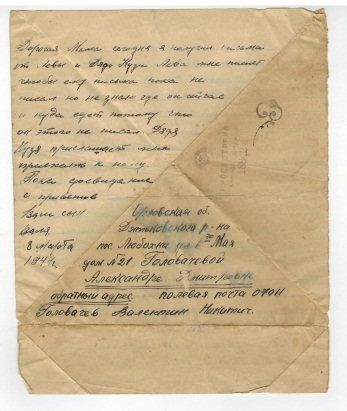 Дорогая Мама сегодня я получил письма
от Левы и Дяди Кузи Лева мне пишет
чтобы ему письма пока не
писал но не знаю где он сейчас
и куда едет потому что
он этого не писал. Дядя
Кузя приглашает меня
приехать к нему.
Пока досвидание
с приветом
Ваш сын
Валя
8 марта
1944г.
Орловская об.
Дятьковского р-на
пос. Любохна ул. 1го Мая
дом №21 Головачевой
Александре Дмитровне
обратный адрес полевая почта 07011
Головачев Валентин Никитич.